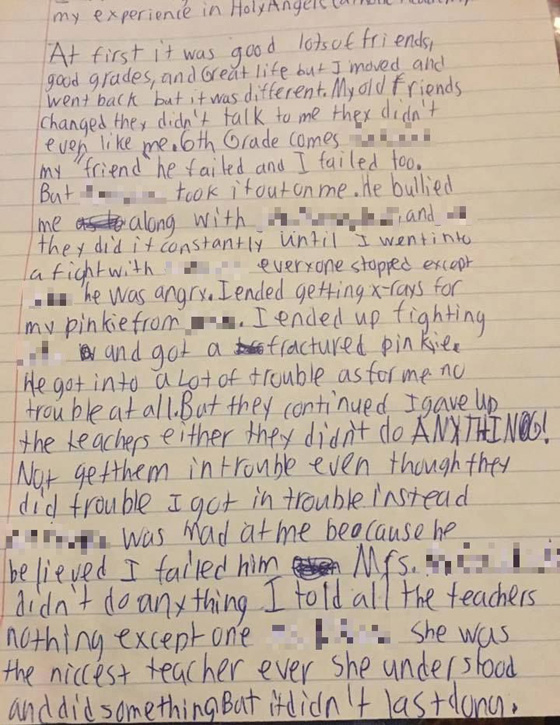 my experience in Holy Angels Catholic Academy
At first it was good lots of friends,
good grades, and Great life but I moved and
went back but it was different. My old friends
changed they didn't talk to me they didn't
even like me. 6th Grade comes
my "friend he failed and I failed too.
But took it out on me. He bullied
me along with and
they did it constantly until I went into
a fight with everyone stopped except
he was angry. I ended getting x-rays for
my pinkie from . I ended up fighting
and got a fractured pinkie.
He got into a Lot of trouble as for me no
trouble at all. But they continued I gave up
the teachers either they didn't do ANYTHING!
Not get them in trouble even though they
did trouble I got in trouble instead
was mad at me beocause he
believed I failed him Mrs.
didn't do anything I told all the teachers
nothing except one she was
the niccest teacher ever she understood
and did something But it didn't last long.